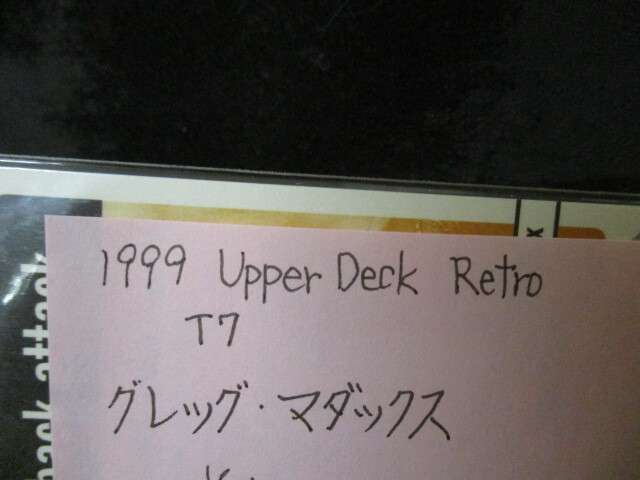 1999 Upper Deck Retro
T7
グレッグ・マダックス